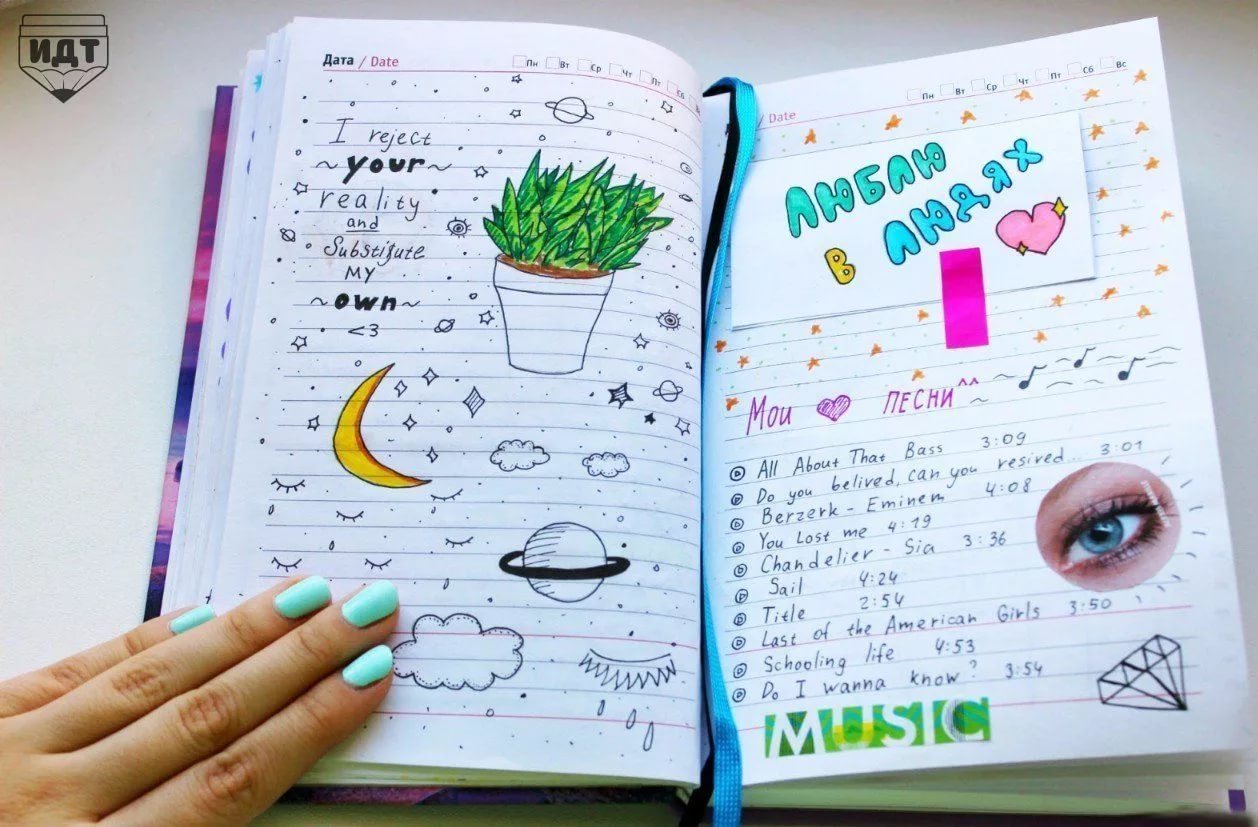 ИДТ
Дата / Date
Пн Вт Ср Чт Пт Сб Вс
I reject
~your~
reality
and
Substitute
MY
~own~
<3
/ Date
Пн Вт Ср Чт Пт Сб Вс
ЛЮБЛЮ
В ЛЮДЯХ
Мои ПЕСНИ^^
All About That Bass 3:09
Do you belived, can you resired... 3:01
Berzerk - Eminem 4:08
You Lost me 4:19
Chandelier - Sia 3:36
Sail 4:24
Title 2:54
Last of the American Girls 3:50
Schooling life 4:53
Do I wanna know? 3:54
MUSIC